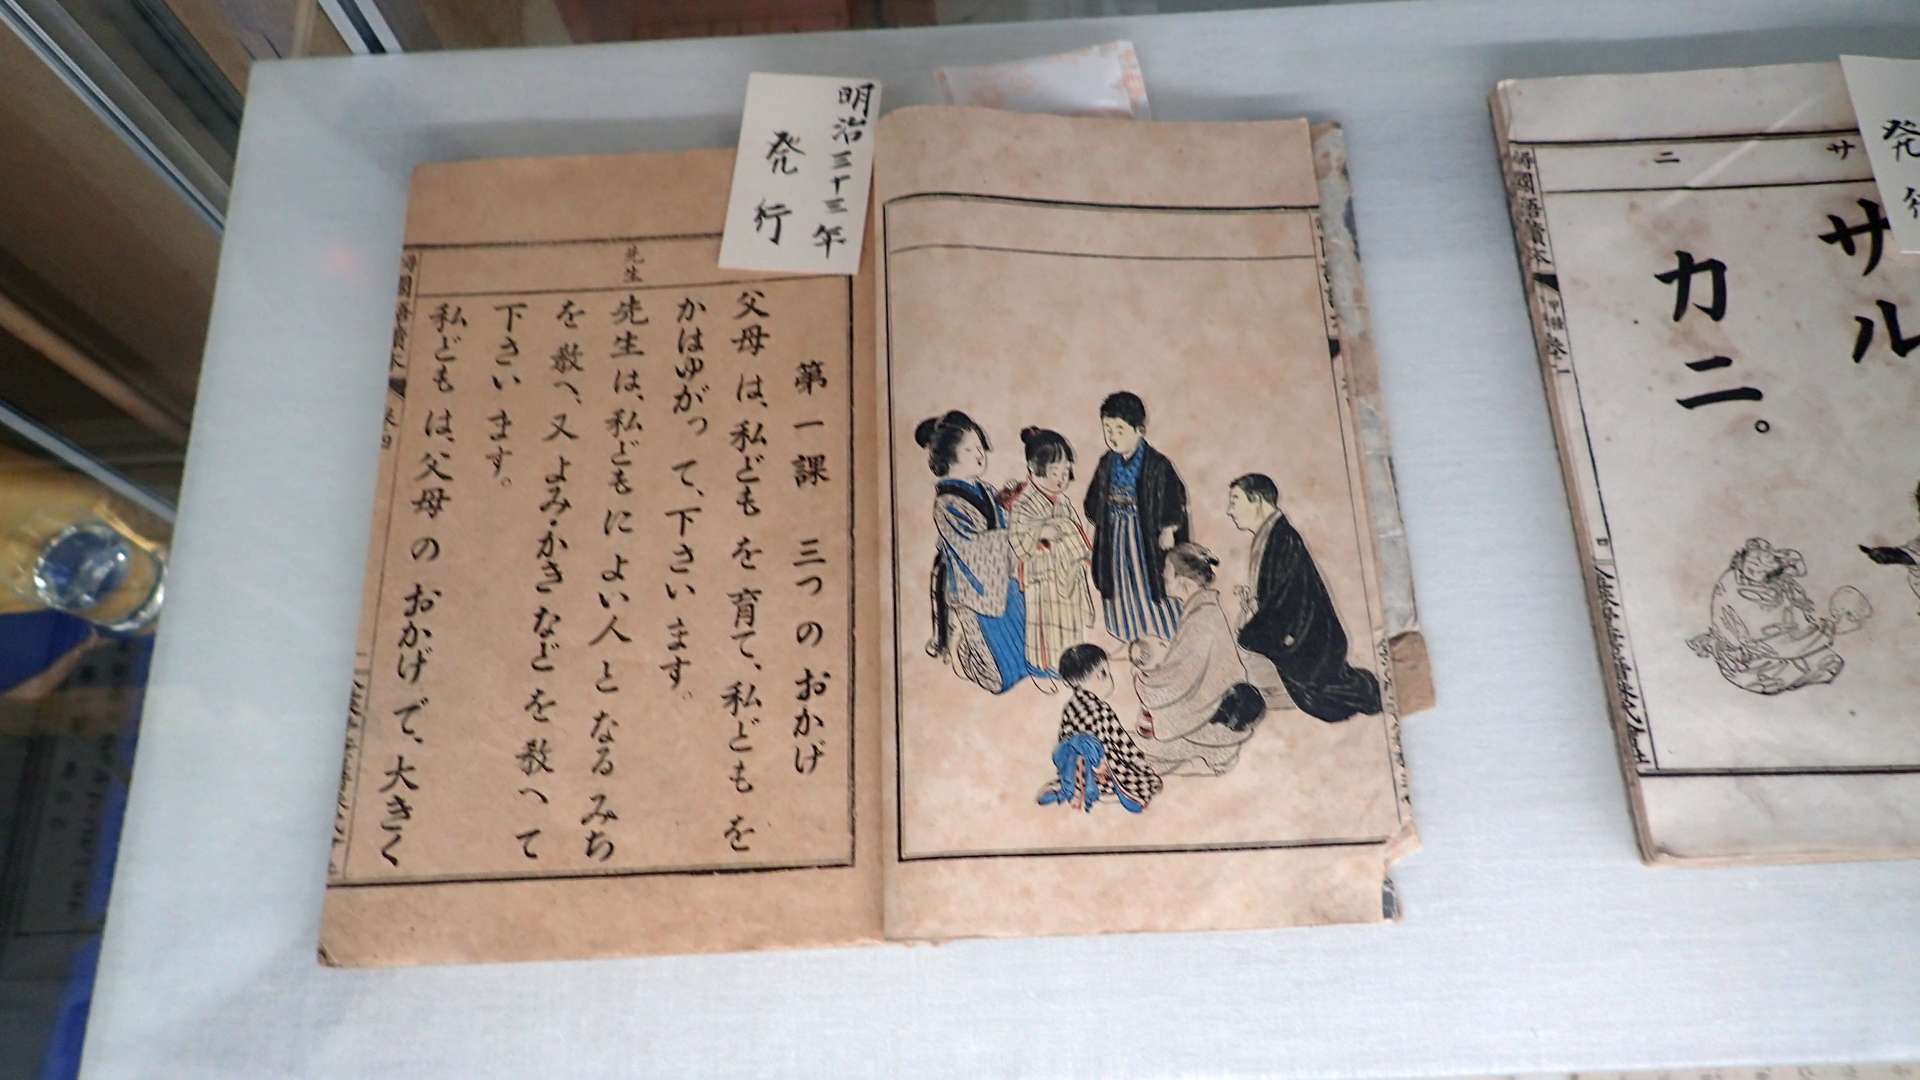 明治三十三年
発行
第一課 三つのおかげ
父母は、私どもを育て、私どもを
かはゆがって、下さいます。
先生
先生は、私どもによい人となるみち
を敎へ、又よみ・かきなどを敎へて
下さいます。
私どもは、父母のおかげで、大きく
國語讀本
巻四
発行
サ
ニ
サル
カニ。
國語讀本
甲種
巻二